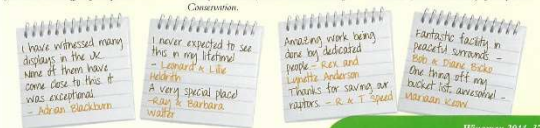 Conservation.
I have witnessed many
displays in the UK.
None of them have
come close to this it
was exceptional
- Adrian Blackburn
I never expected to see
this in my lifetime!
- Leonard & Lillie
Heldrith
A very special place!
-Ray & Barbara
Walter
Amazing work being
done by dedicated
people - Rex and
Lynette Anderson
Thanks for saving our
raptors. - R. & T Speed
Fantastic facility in
peaceful surrounds -
Bob & Diane Bicko
One thing off my
bucket list, awesome! -
Mariaan Keow
2014